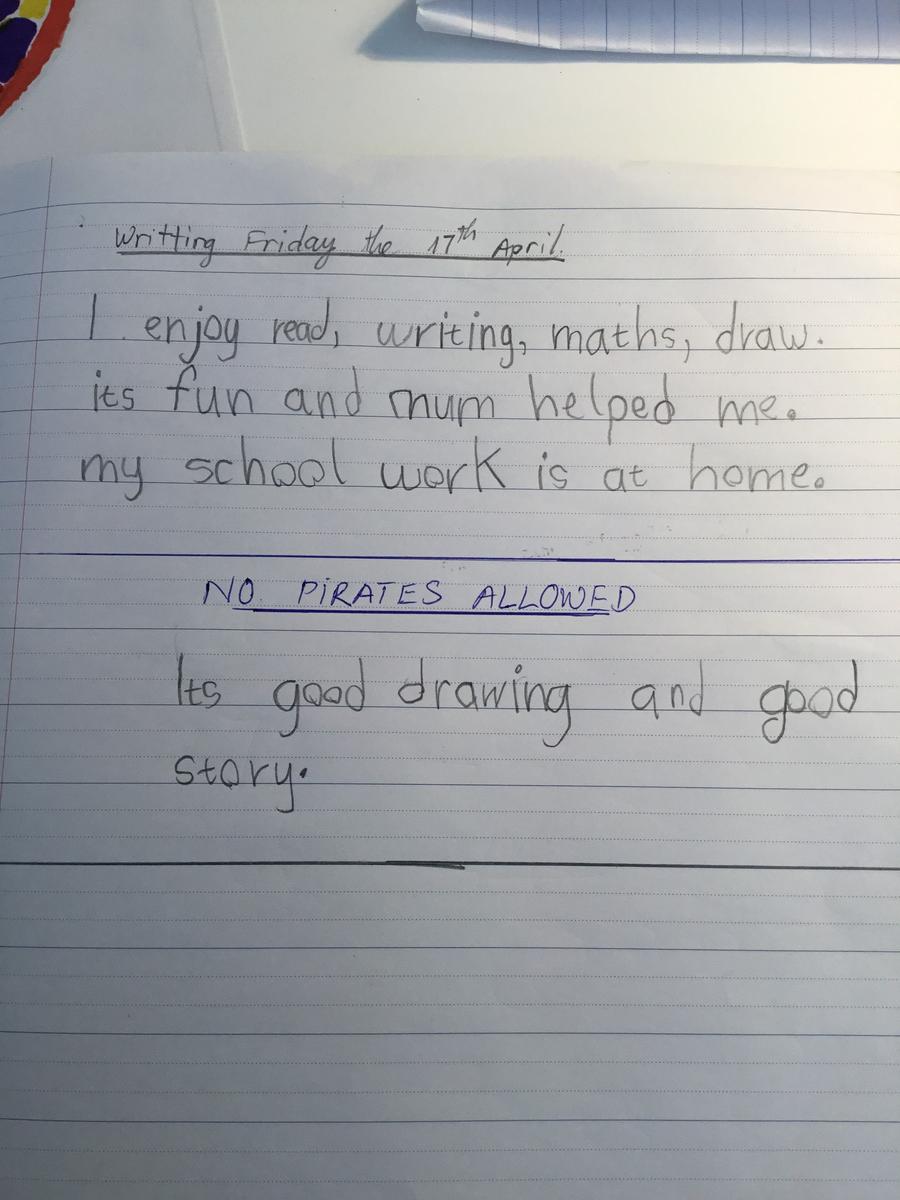 Writting Friday the 17th April.
I enjoy read, writing, maths, draw.
its fun and mum helped me.
my school work is at home.
NO PIRATES ALLOWED
Its good drawing and good
story.